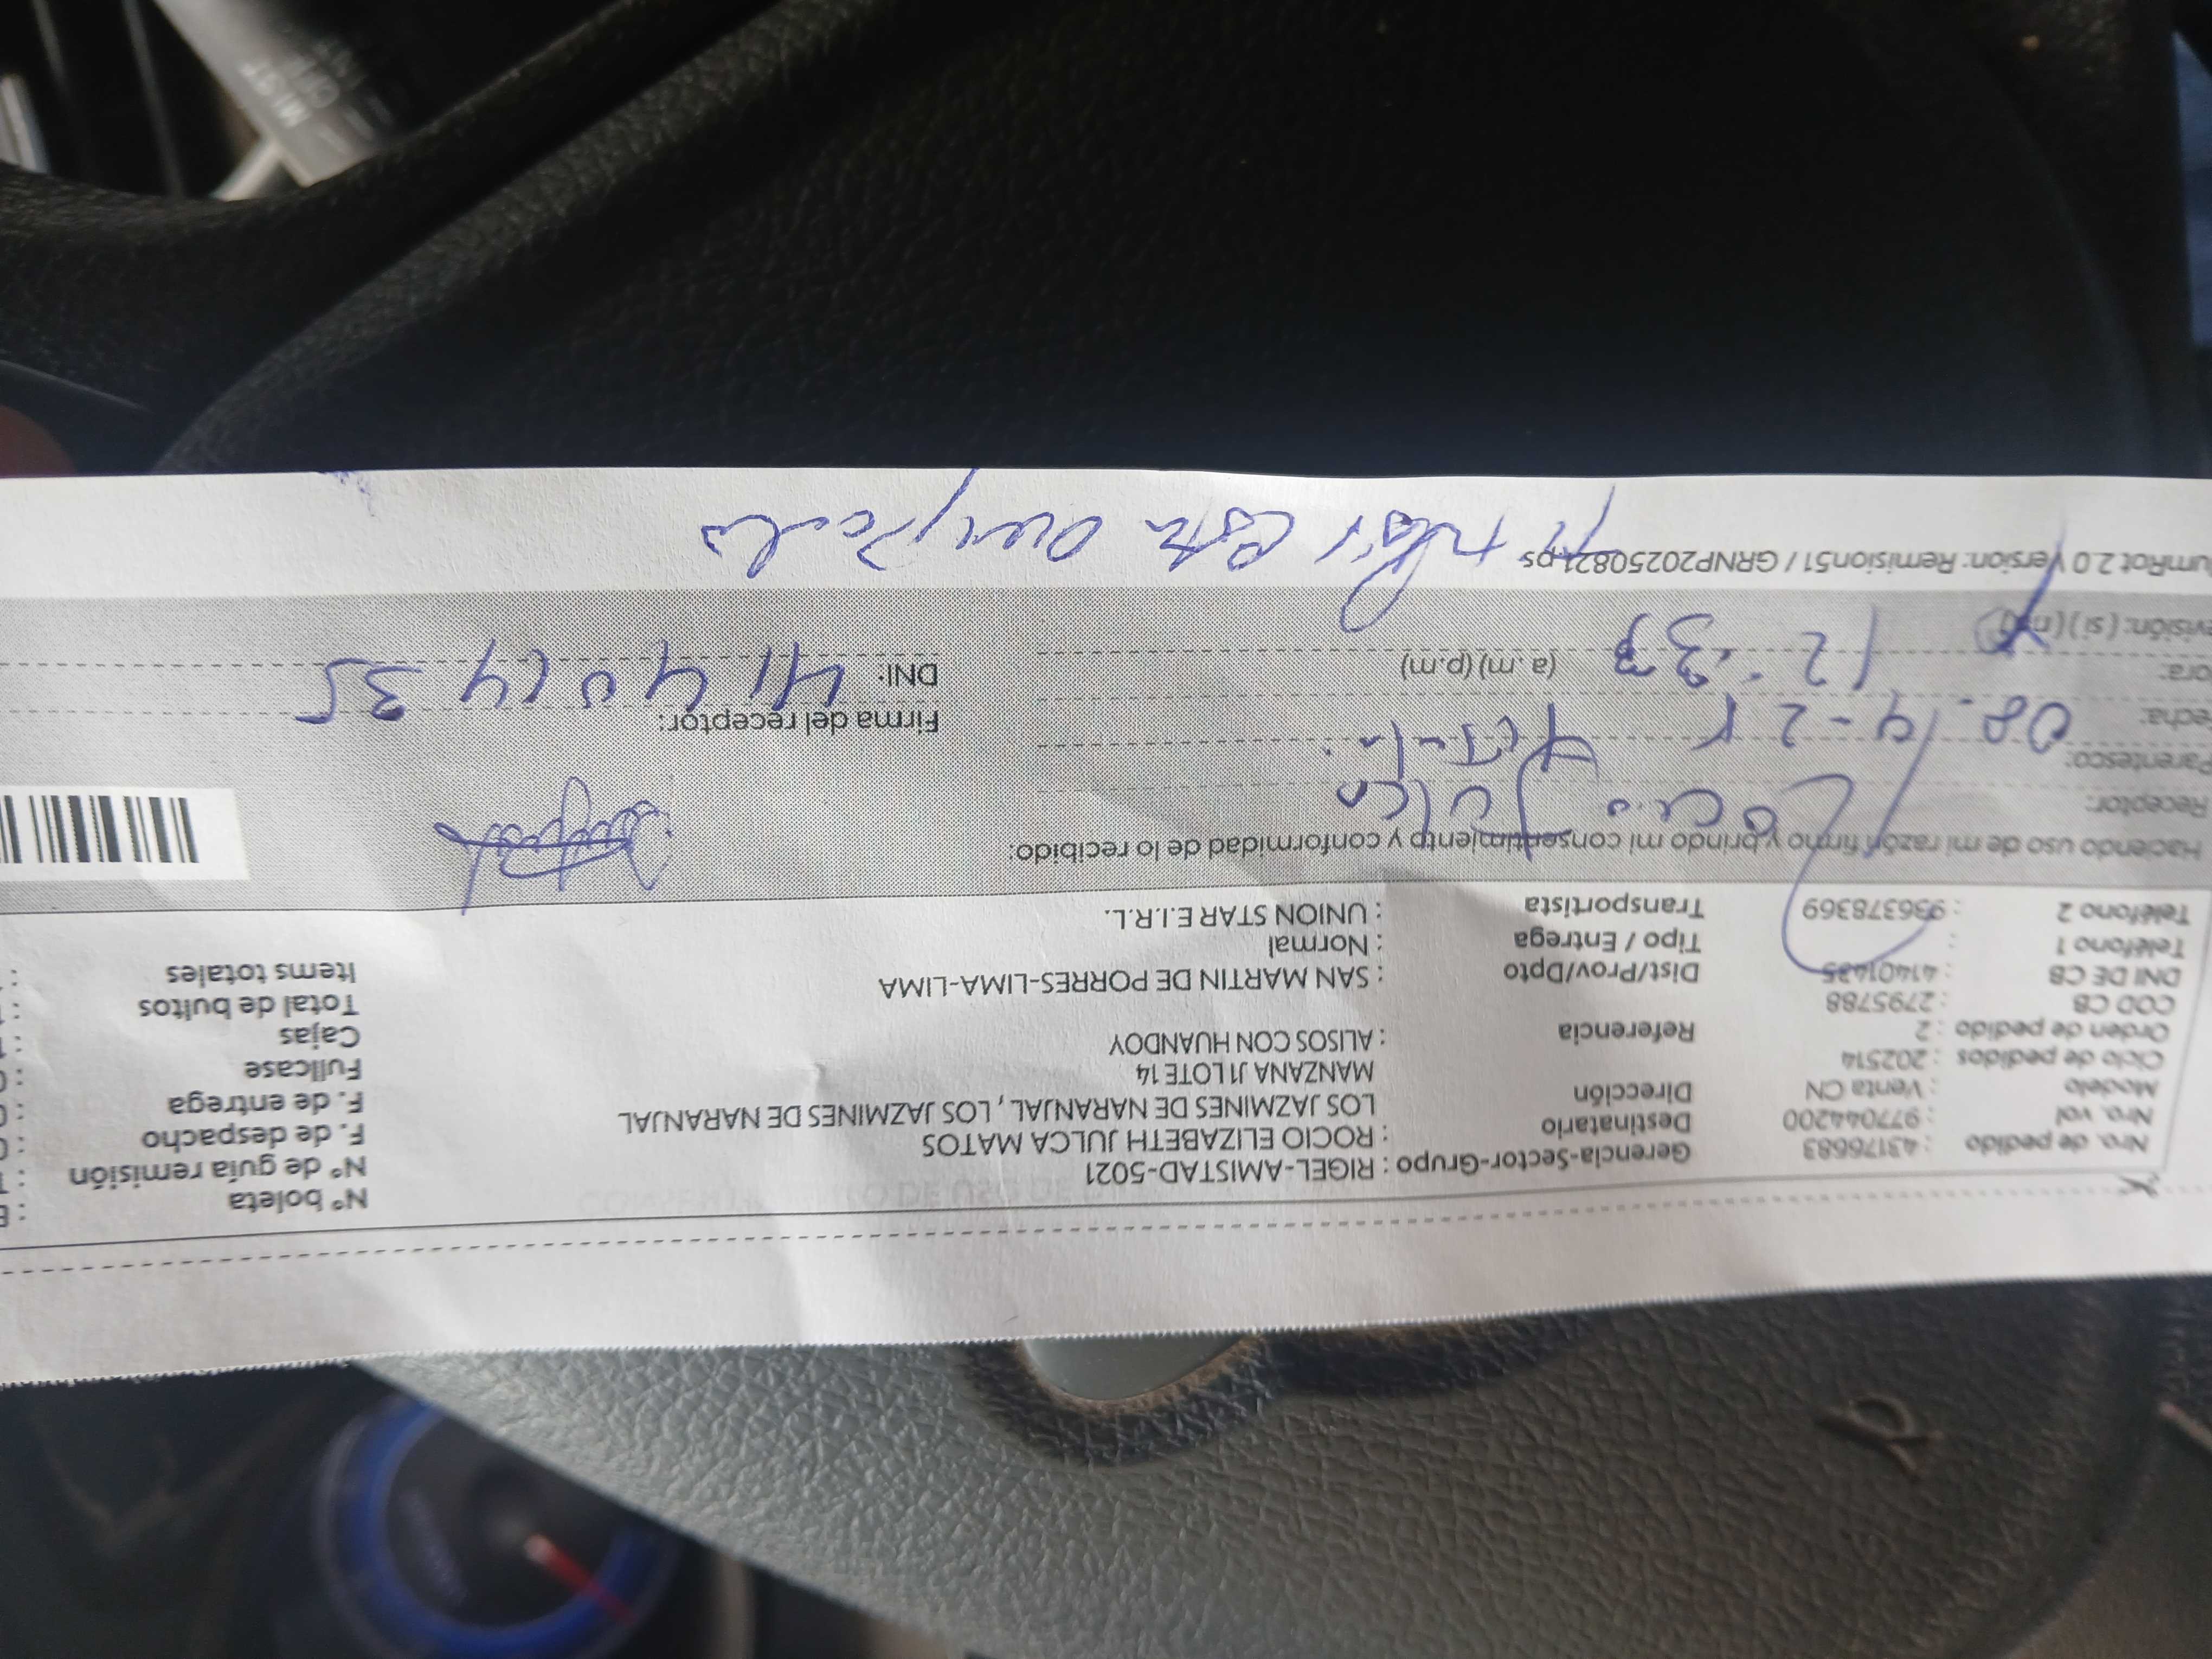 Nro. de pedido : 43176683
Nro. vol : 977044200
Modelo : Venta CN
Ciclo de pedidos : 202514
Orden de pedido : 2
COD CB : 2795788
DNI DE CB : 41401435
Teléfono 1 :
Teléfono 2 : 936378369
Gerencia-Sector-Grupo : RIGEL-AMISTAD-5021
Destinatario : ROCIO ELIZABETH JULCA MATOS
Dirección LOS JAZMINES DE NARANJAL, LOS JAZMINES DE NARANJAL
MANZANA J1 LOTE 14
Referencia : ALISOS CON HUANDOY
Dist/Prov/Dpto : SAN MARTIN DE PORRES-LIMA-LIMA
Tipo / Entrega : Normal
Transportista : UNION STAR E.I.R.L.
N° boleta :
N° de guía remisión :
F. de despacho :
F. de entrega :
Fullcase :
Cajas :
Total de bultos :
Items totales :
Haciendo uso de mi razón firmo y brindo mi consentimiento y conformidad de lo recibido:
Receptor: Rocio Julca
Parentesco:
(a.m) (p.m) 12:33
Firma del receptor:
DNI: 41401435
(si) (no)
2.0 Version: Remision51 / GRNP20250821.ps
esta ocupada